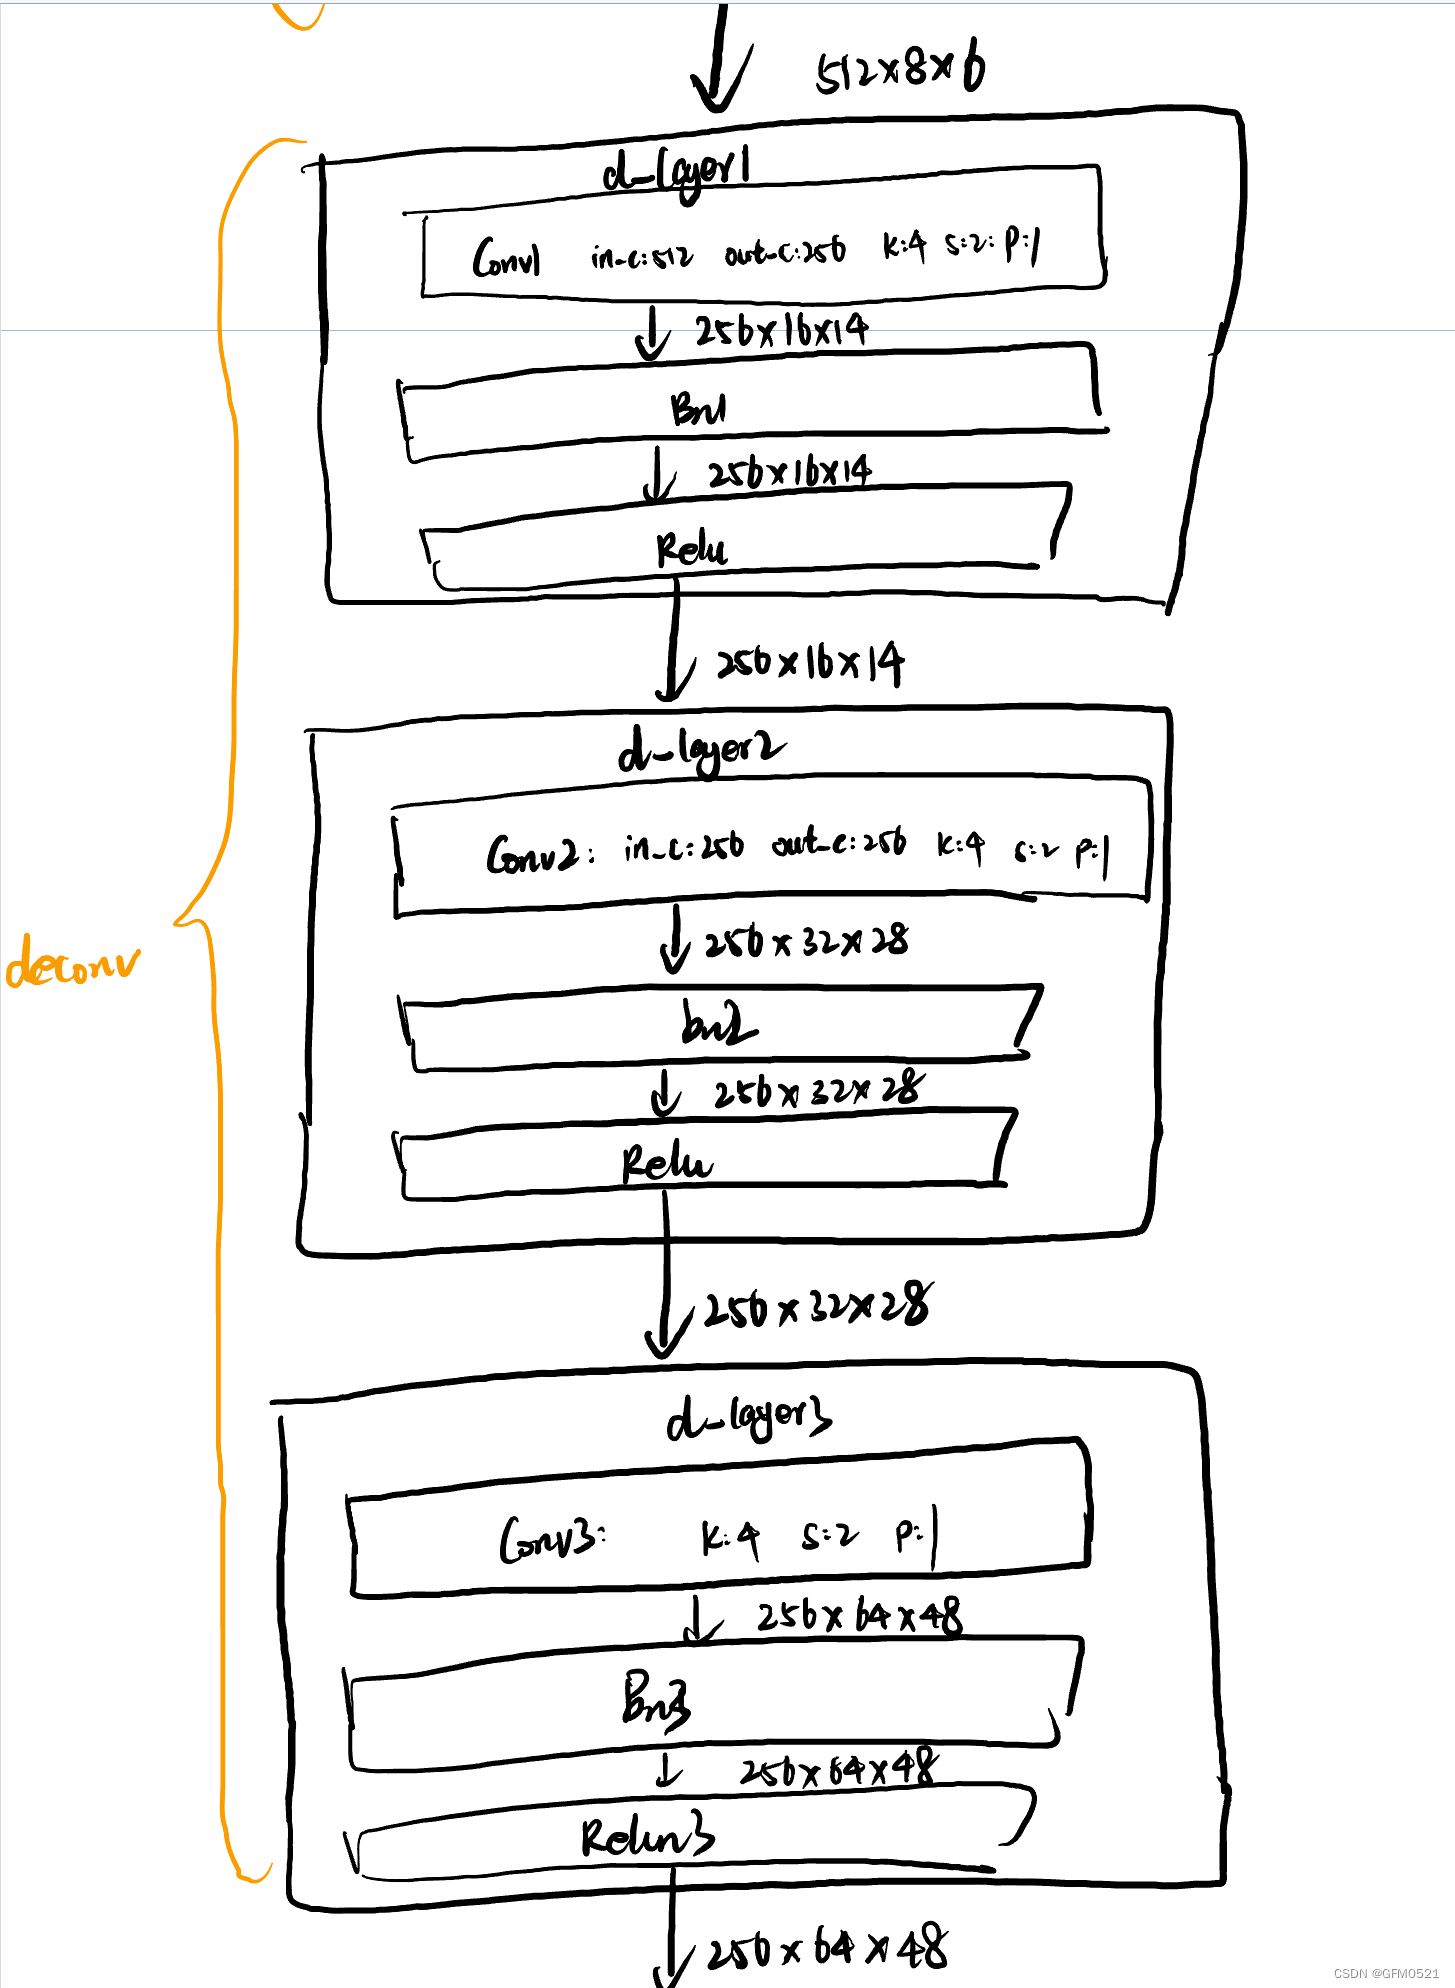 512×8×6
d_layer1
Conv1 in_c:512 out_c:256 k:4 s:2: P:1
256×16×14
Bn1
256×16×14
Relu
256×16×14
d_layer2
Conv2: in_c:256 out_c:256 k:4 s:2 p:1
256×32×28
deconv
bn2
256×32×28
Relu
256×32×28
d_layer3
Conv3: k:4 s:2 p:1
256×64×48
Bn3
256×64×48
Relun3
256×64×48
CSDN @GFM0521